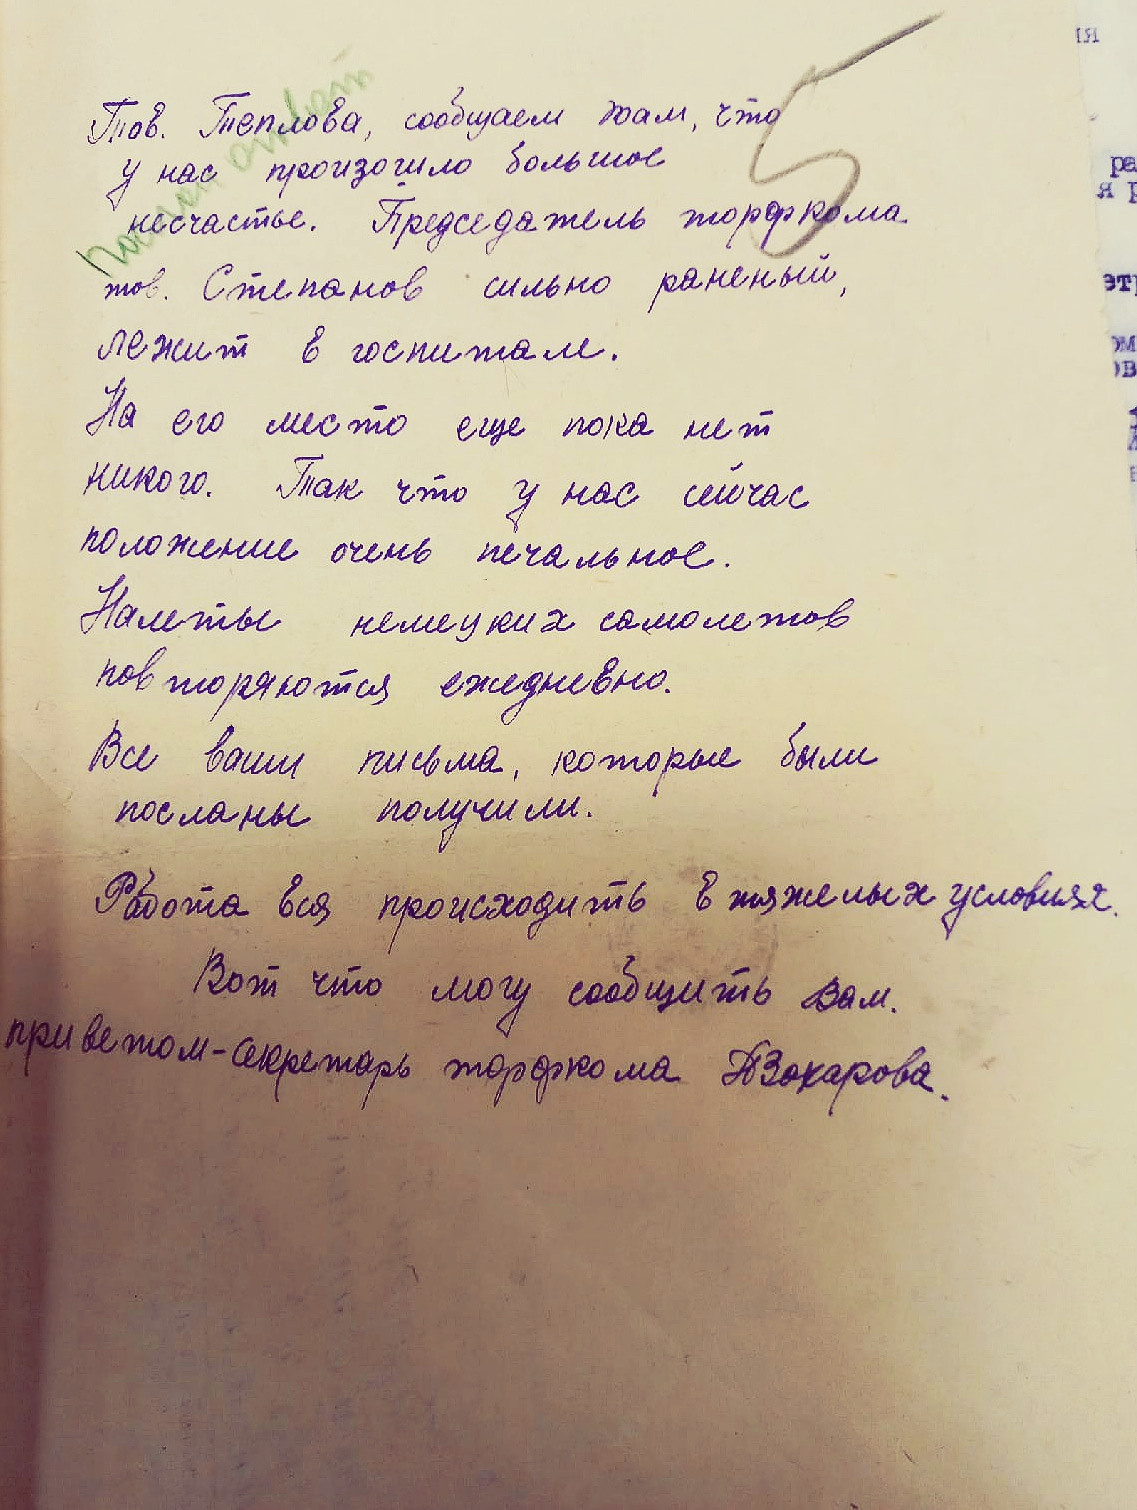 5
Послан ответ
Тов. Теплова, сообщаем Вам, что
у нас произошло большое
несчастье. Председатель торфкома
тов. Степанов сильно раненый,
лежит в госпитале.
На его место еще пока нет
никого. Так что у нас сейчас
положение очень печальное.
Налеты немецких самолетов
повторяются ежедневно.
Все ваши письма, которые были
посланы получили.
Работа вся происходить в тяжелых условиях.
Вот что могу сообщить Вам.
приветом-секретарь торфкома Захарова.